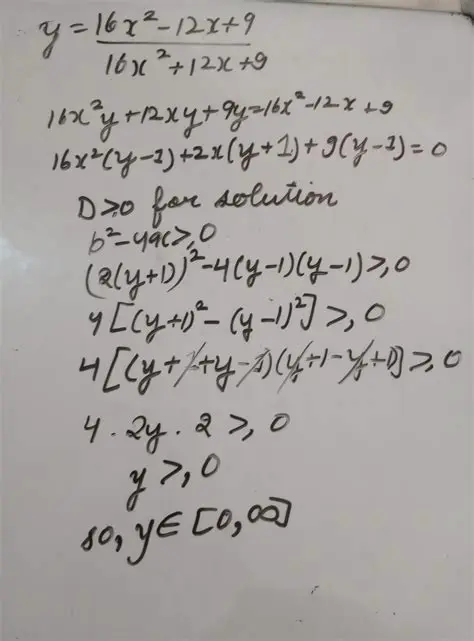 y = 16x² - 12x + 9 / 16x² + 12x + 9
16x²y + 12xy + 9y = 16x² - 12x + 9
16x²(y-1) + 2x(y+1) + 9(y-1) = 0
D ≥ 0 for solution
b² - 4ac ≥ 0
(2(y+1))² - 4(y-1)(y-1) ≥ 0
4[(y+1)² - (y-1)²] ≥ 0
4[(y+1+y-1)(y+1-y+1)] ≥ 0
4 · 2y · 2 ≥ 0
y ≥ 0
so, y ∈ [0, ∞]